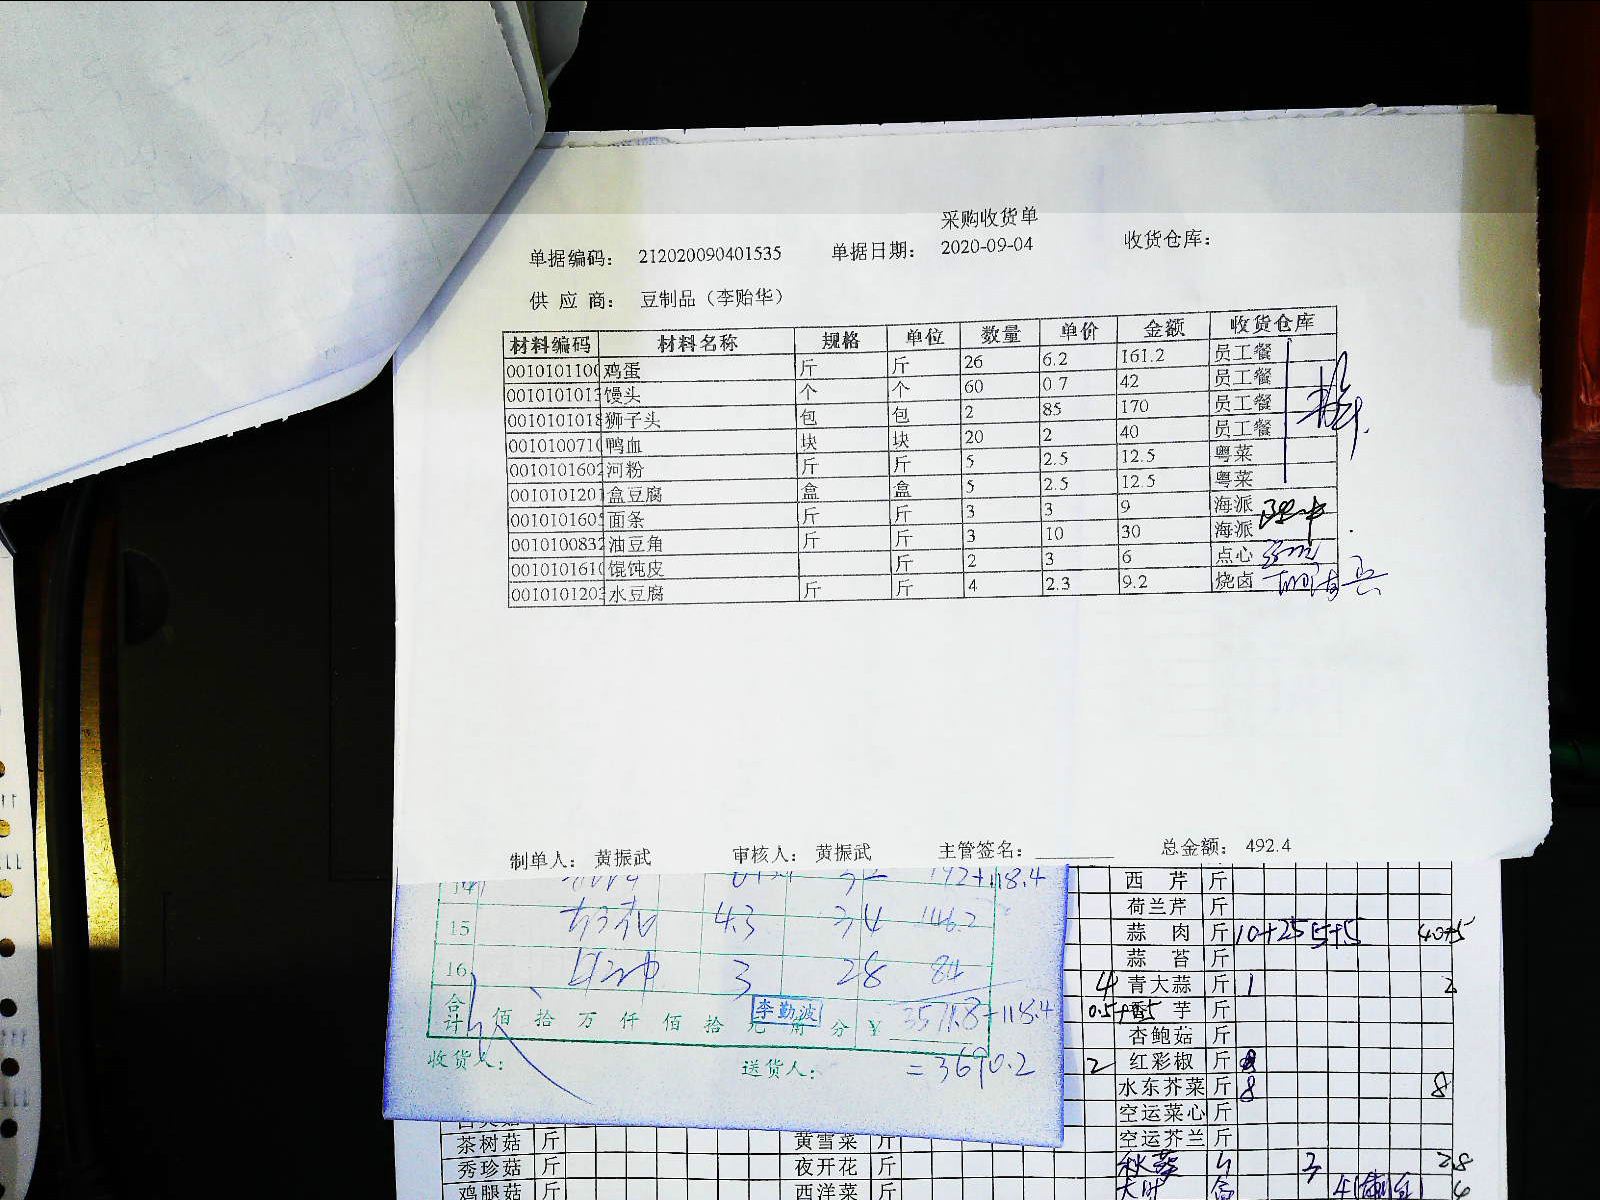 采购收货单
单据编码： 212020090401535 单据日期： 2020-09-04 收货仓库：
供 应 商： 豆制品（李贻华）
材料编码 材料名称 规格 单位 数量 单价 金额 收货仓库
0010101100 鸡蛋 斤 斤 26 6.2 161.2 员工餐
001010101 馒头 个 个 60 0.7 42 员工餐
0010101018 狮子头 包 包 2 85 170 员工餐
0010100710 鸭血 块 块 20 2 40 员工餐
0010101602 河粉 斤 斤 5 2.5 12.5 粤菜
0010101201 盒豆腐 盒 盒 5 2.5 12.5 粤菜
001010160 面条 斤 斤 3 3 9 海派
0010100832 油豆角 斤 斤 3 10 30 海派
0010101610 馄饨皮 斤 2 3 6 点心
0010101203 水豆腐 斤 斤 4 2.3 9.2 烧卤
制单人： 黄振武 审核人： 黄振武 主管签名： 总金额： 492.4
14 192+118.4
15 4.3 34 146.2
16 3 28 84
合计 佰 拾 万 仟 佰 拾 元 角 分 ￥ 3571.8+118.4
李勤波
收货人： 送货人： =3690.2
西 芹 斤
荷兰芹 斤
蒜 肉 斤 10+25 5+5 40+5
蒜 苔 斤
4 青大蒜 斤 1 2
香 芋 斤
杏鲍菇 斤
2 红彩椒 斤
水东芥菜 斤 8 8
空运菜心 斤
空运芥兰 斤
茶树菇 斤 黄雪菜 斤
秀珍菇 斤 夜开花 斤 3 28
鸡腿菇 斤 西洋菜 斤